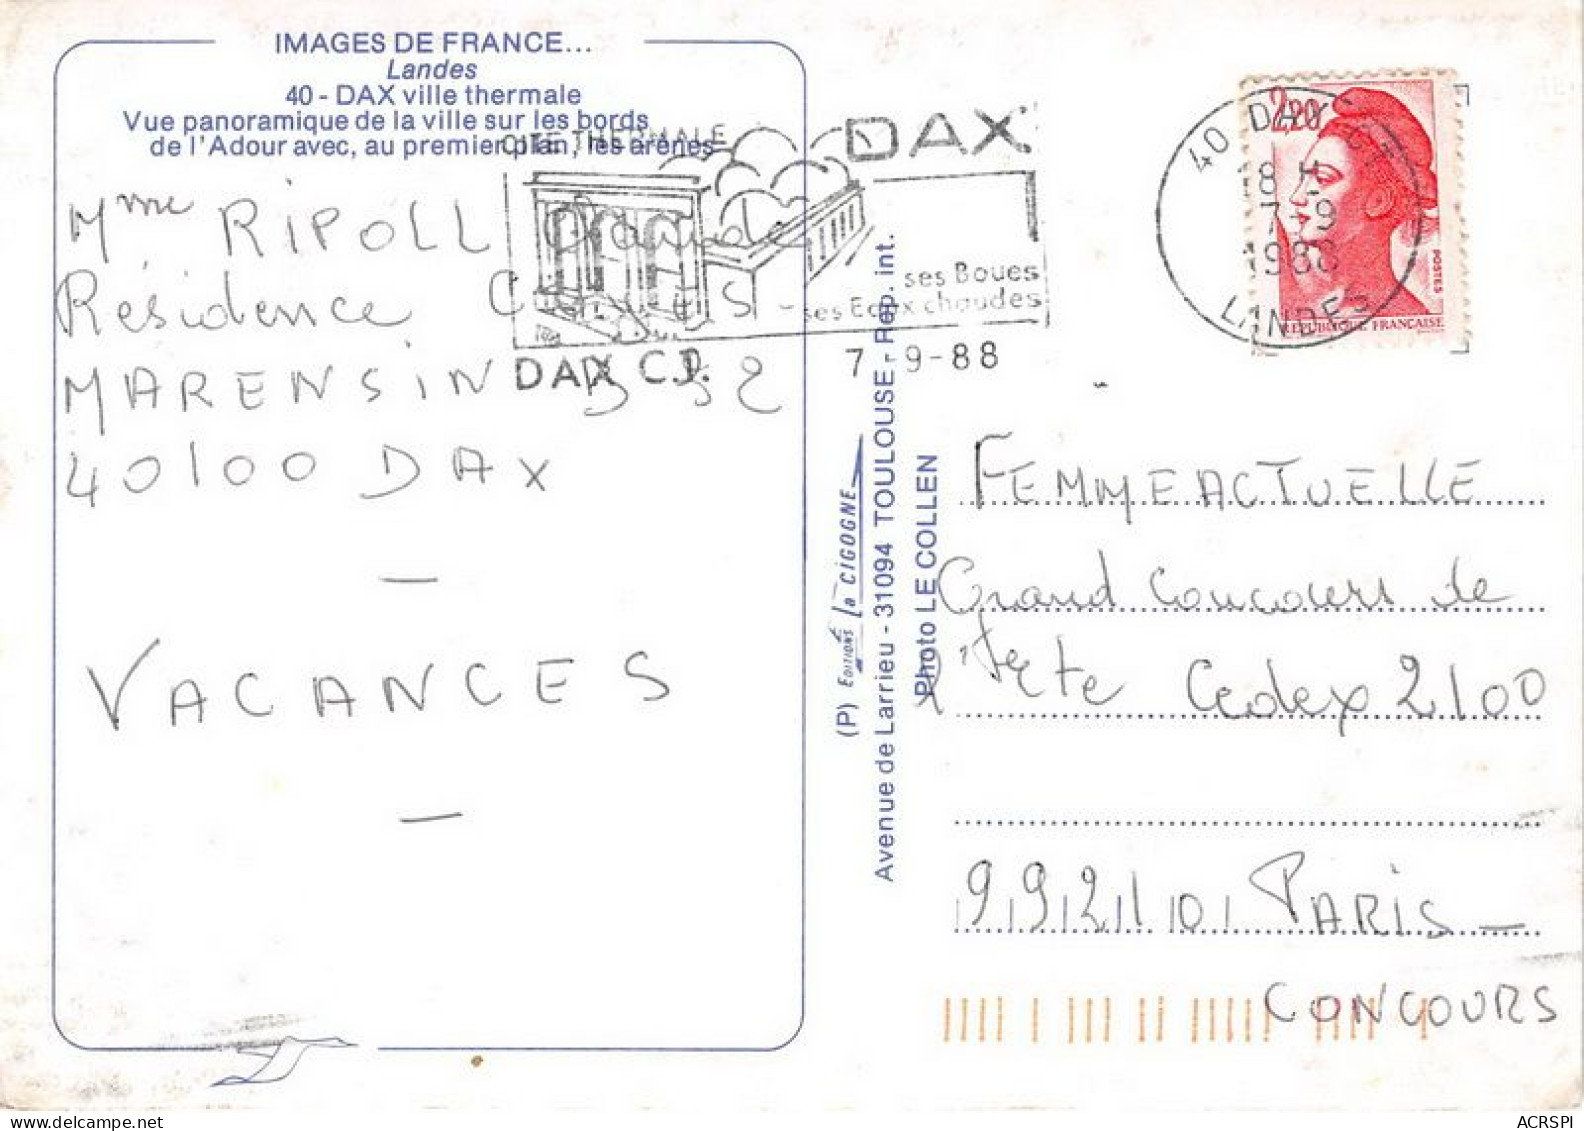 IMAGES DE FRANCE...
Landes
40 - DAX ville thermale
Vue panoramique de la ville sur les bords
de l'Adour avec, au premier plan, les arènes
CITE THERMALE
DAX
ses Boues
ses Eaux chaudes
DAX C.T.
7 - 9-88
40 DAX CT
18 H
7-9
1988
LANDES
2,20
POSTES
REPUBLIQUE FRANÇAISE
Mme RIPOLL
Résidence
MARENSIN
40100 DAX
—
VACANCES
—
(P) EDITIONS la CIGOGNE
Avenue de Larrieu - 31094 TOULOUSE - Rep. int.
Photo LE COLLEN
FEMME ACTUELLE
Grand Concours de
l'été Cedex 2100
99210 PARIS —
CONCOURS
ACRSPI